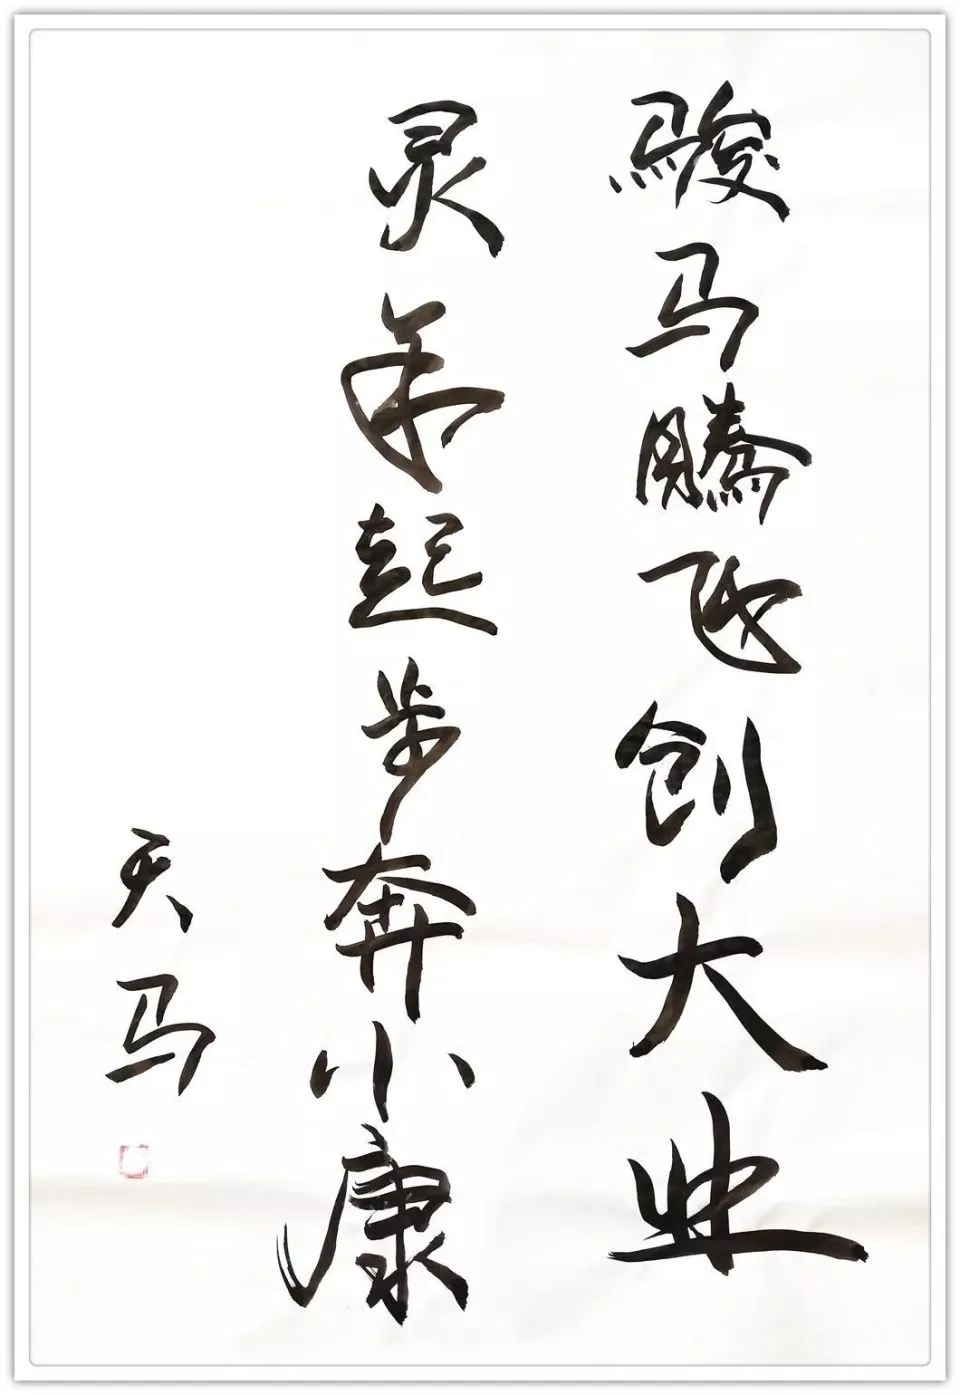 駿马騰飞创大业
灵羊起步奔小康
天马